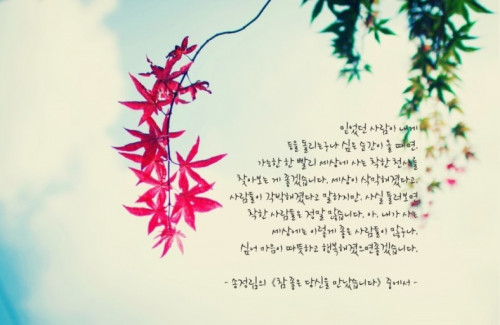 믿었던 사람이 내게
등을 돌리는구나 싶은 순간이 올 때면,
가능한 한 빨리 세상에 사는 착한 천사를
찾아보는 게 좋겠습니다. 세상이 삭막해졌다고,
사람들이 각박해졌다고 말하지만, 사실 둘러보면
착한 사람들은 정말 많습니다. 아, 내가 사는
세상에는 이렇게 좋은 사람들이 많구나,
싶어 마음이 따뜻하고 행복해졌으면좋겠습니다.
- 송정림의 《참 좋은 당신을 만났습니다》 중에서 -